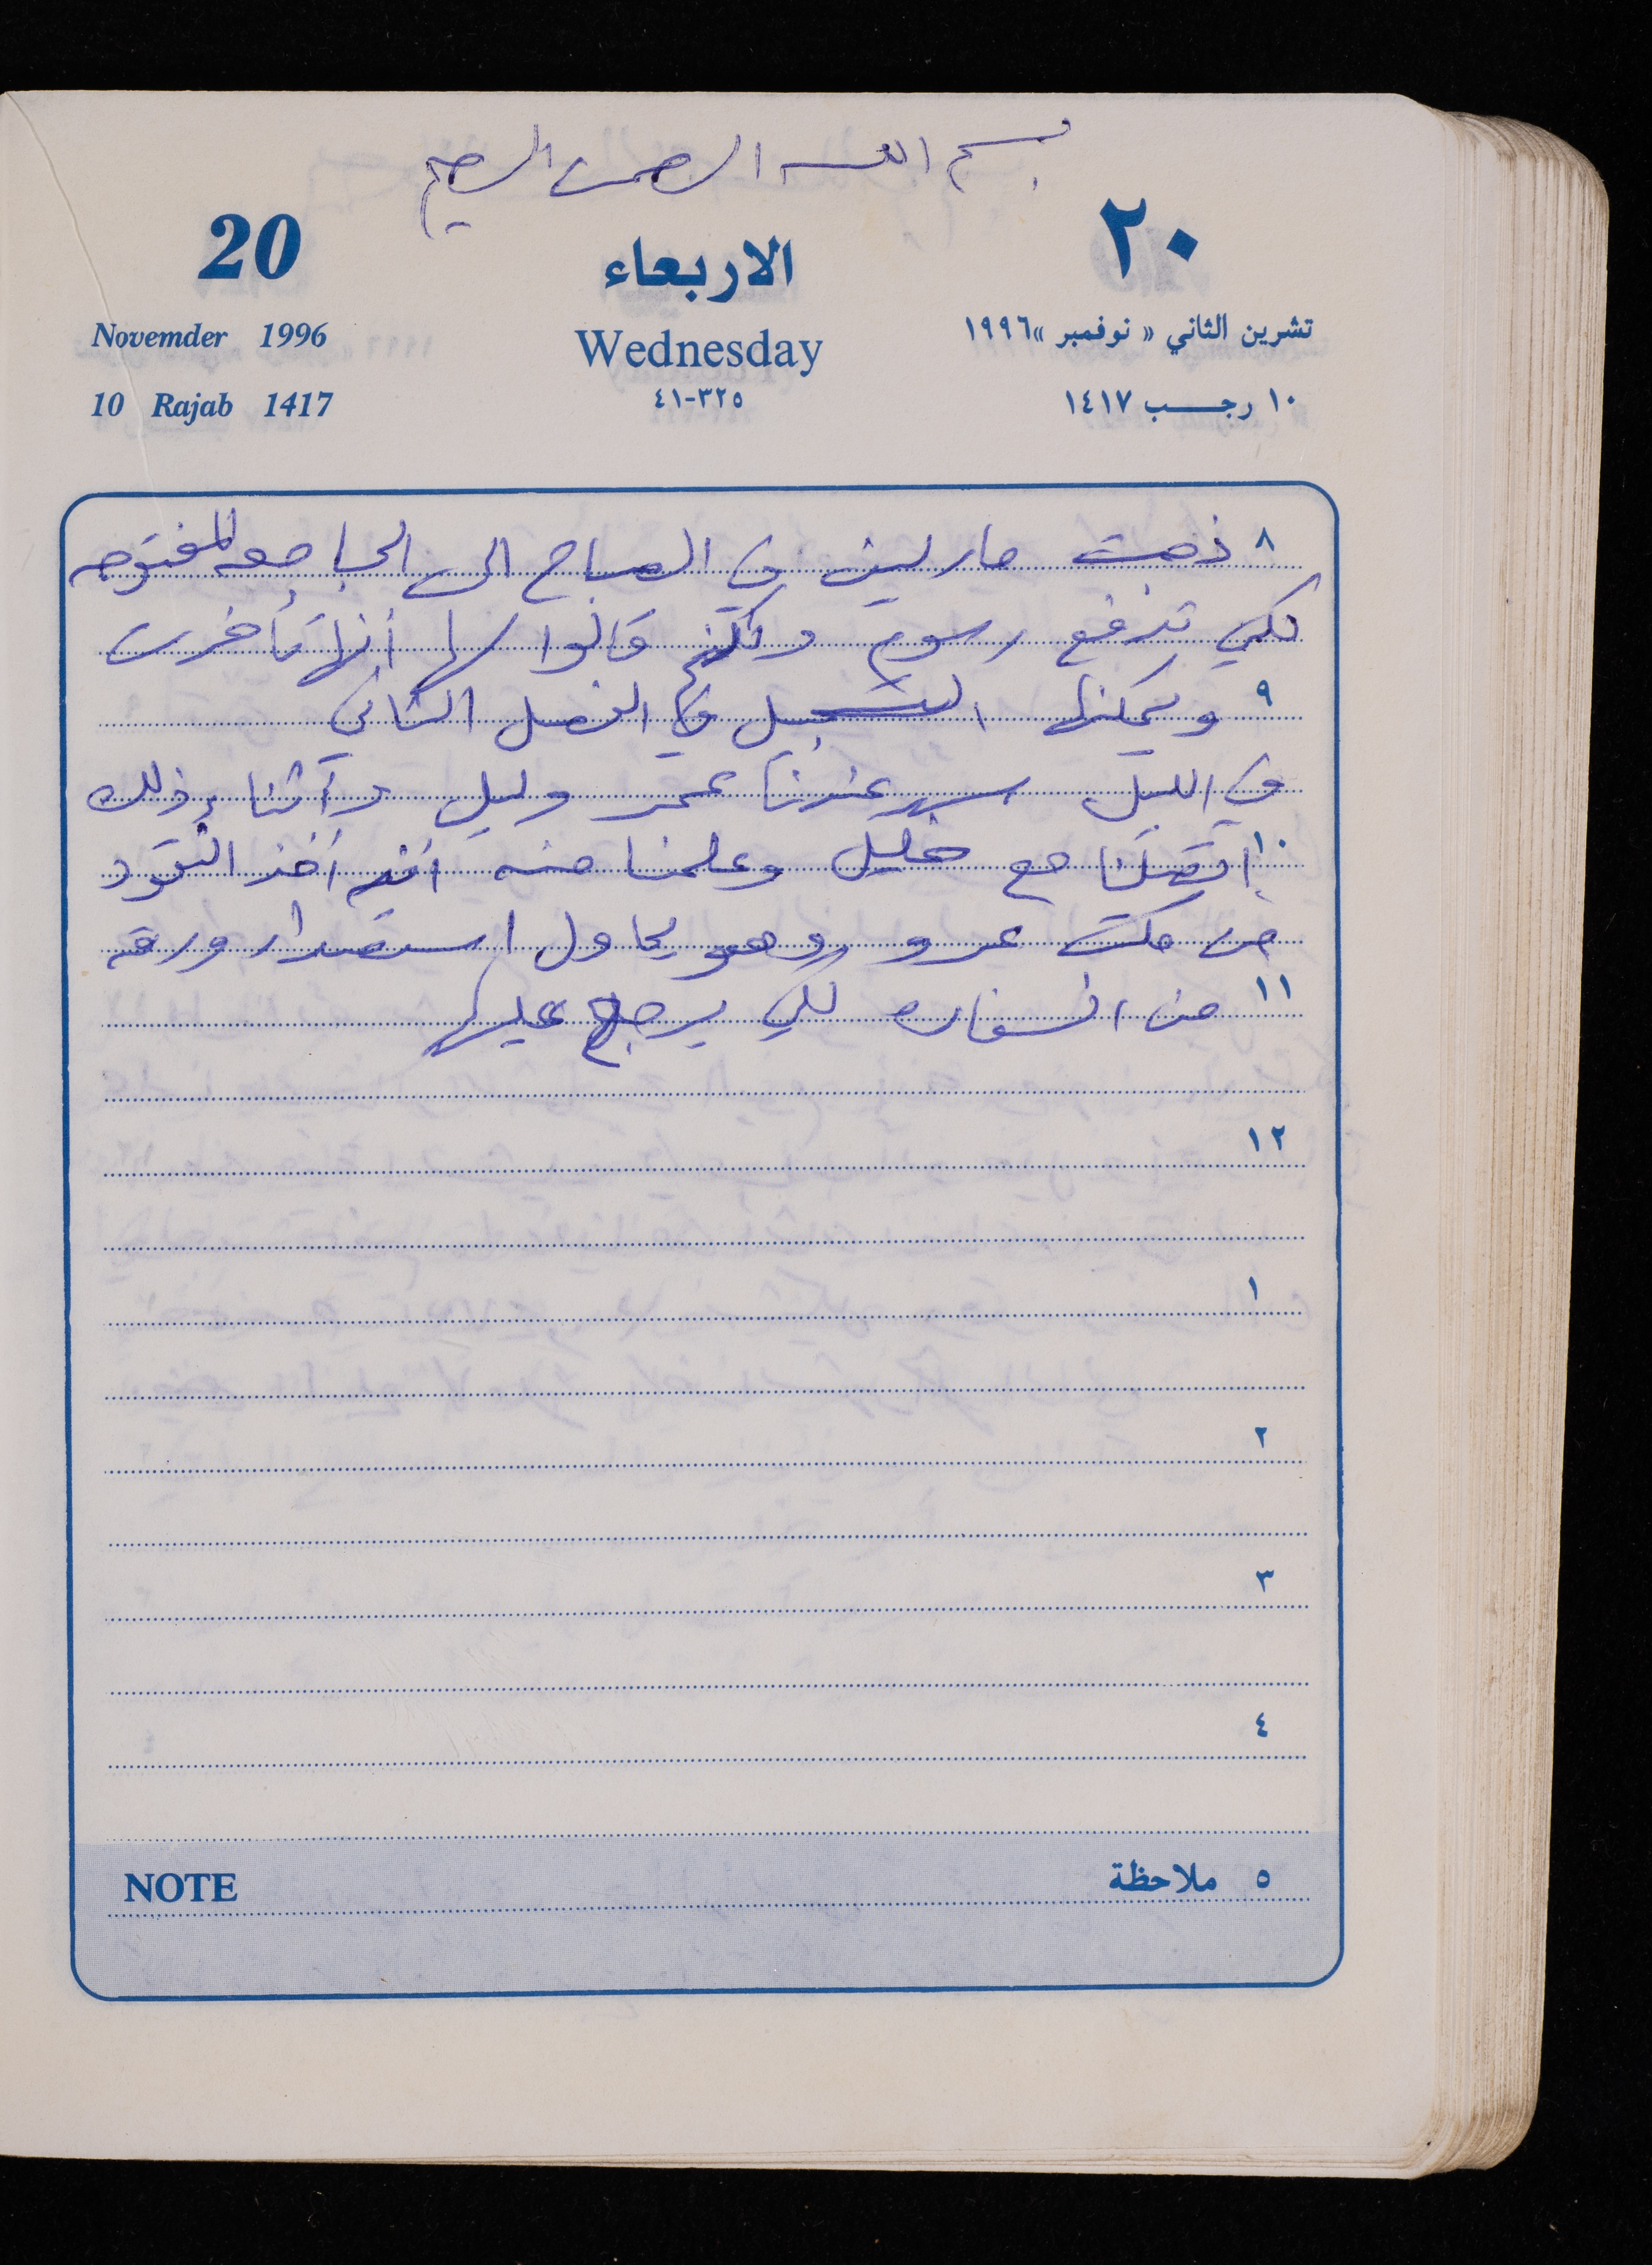 بسم الله الرحمن الرحيم
20 الاربعاء ٢٠
Novemder 1996 Wednesday تشرين الثاني « نوفمبر »١٩٩٦
10 Rajab 1417 ٣٢٥-٤١ ١٠ رجب ١٤١٧
٨ ذهبت مارلين في الصباح الى الجامعه المفتوحه
لكي تدفع رسوم ولكنهم قالوا لها أنها تأخرت
٩ ويمكنها التسجيل في الفصل الثاني
في الليل سهر عندنا عمر وليل وآثنا ذلك
١٠ إتصلنا مع خليل وعلمنا منه أنه أخذ النقود
من مكتب عمرو وهو يحاول استصدار ورقه
١١ من السفاره لكي يرجع عليها
١٢
١
٢
٣
٤
NOTE ٥ ملاحظة